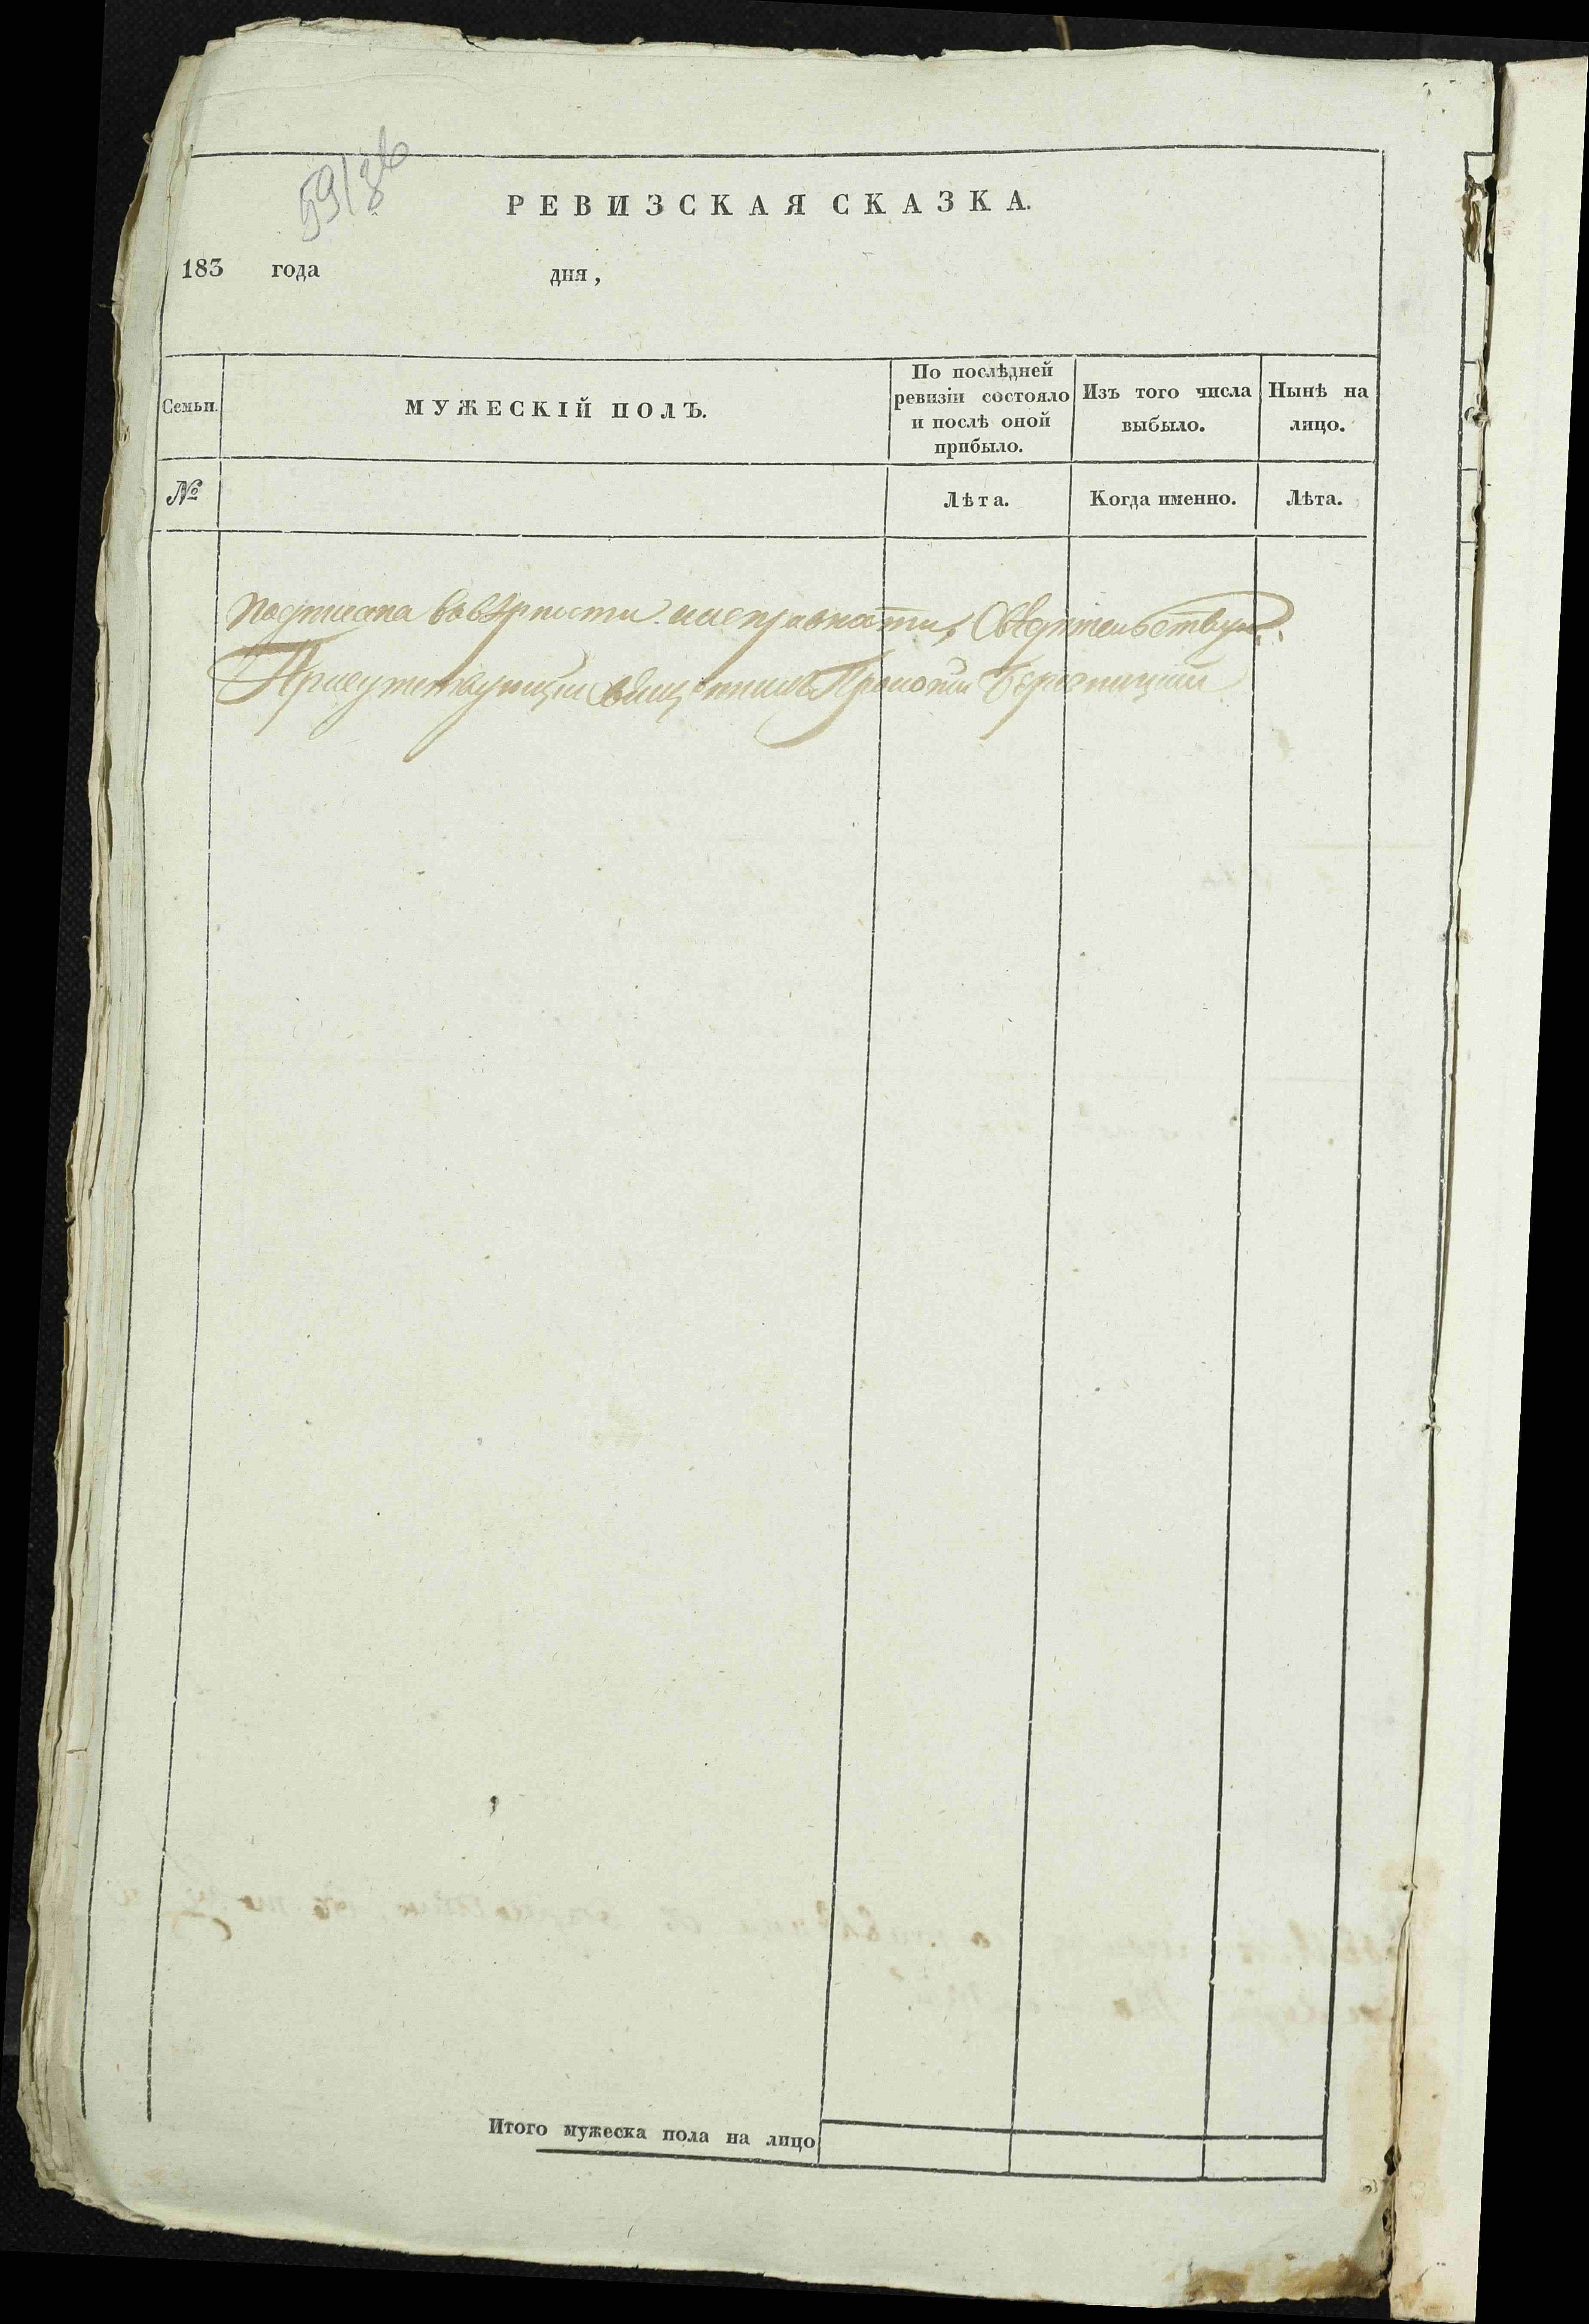 59/зв
РЕВИЗСКАЯ СКАЗКА.
183 года дня,
Семьи.
МУЖЕСКІЙ ПОЛЪ.
По послѣдней
ревизіи состояло
и послѣ оной
прибыло.
Изъ того числа
выбыло.
Нынѣ на
лицо.
№
Лѣта.
Когда именно.
Лѣта.
подписана вовѣрности
Присутствующий Священникъ Прокопий
Итого мужеска пола на лицо